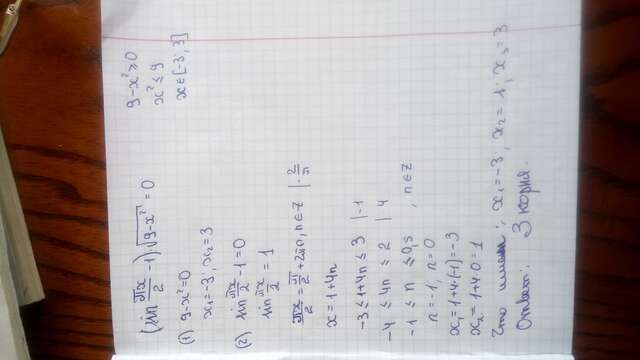 (sin πx/2 -1)√(9-x²) = 0
9-x² ≥ 0
x² ≤ 9
x ∈ [-3; 3]
(1) 9-x² = 0
x₁ = -3; x₂ = 3
(2) sin πx/2 - 1 = 0
sin πx/2 = 1
πx/2 = π/2 + 2πn, n∈Z | · 2/π
x = 1 + 4n
-3 ≤ 1+4n ≤ 3 | -1
-4 ≤ 4n ≤ 2 | 4
-1 ≤ n ≤ 0,5, n∈Z
n = -1, n = 0
x₁ = 1+4·(-1) = -3
x₂ = 1+4·0 = 1
Что имеем: x₁ = -3; x₂ = 1; x₃ = 3
Ответ: 3 корня.